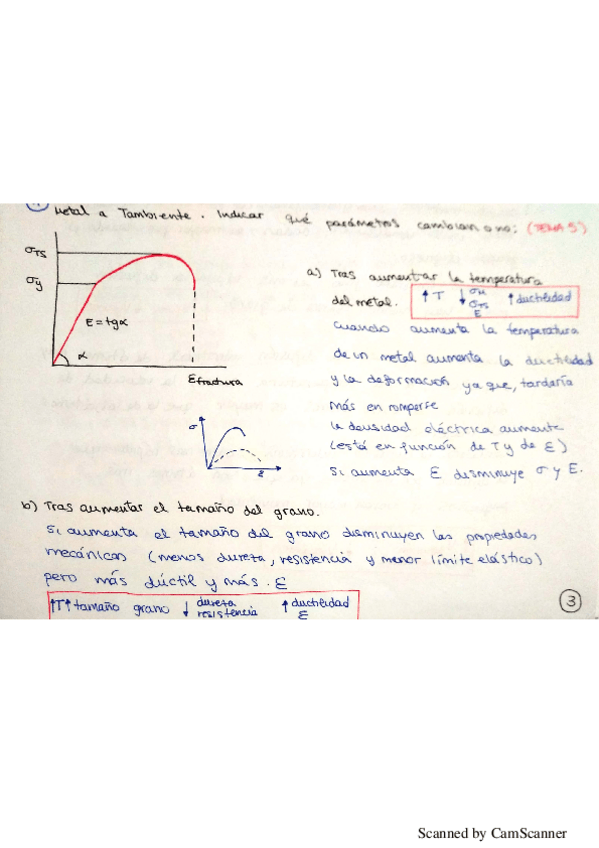 Metal a Tambiente. Indicar qué parámetros cambian o no: (TEMA 5)
σTS
σy
E = tgα
α
Efractura
a) Tras aumentar la temperatura
del metal. ↑T ↓ σM σTS E ↑ductilidad
Cuando aumenta la temperatura
de un metal aumenta la ductilidad
y la deformación ya que, tardaría
más en romperse
la densidad eléctrica aumente
(está en función de T y de ε)
Si aumenta ε disminuye σ y E.
σ
ε
b) Tras aumentar el tamaño del grano.
Si aumenta el tamaño del grano disminuyen las propiedades
mecánicas (menos dureza, resistencia y menor límite elástico)
pero más dúctil y más. ε
↑T↑ tamaño grano ↓ dureza resistencia ↑ ductilidad ε
3
Scanned by CamScanner